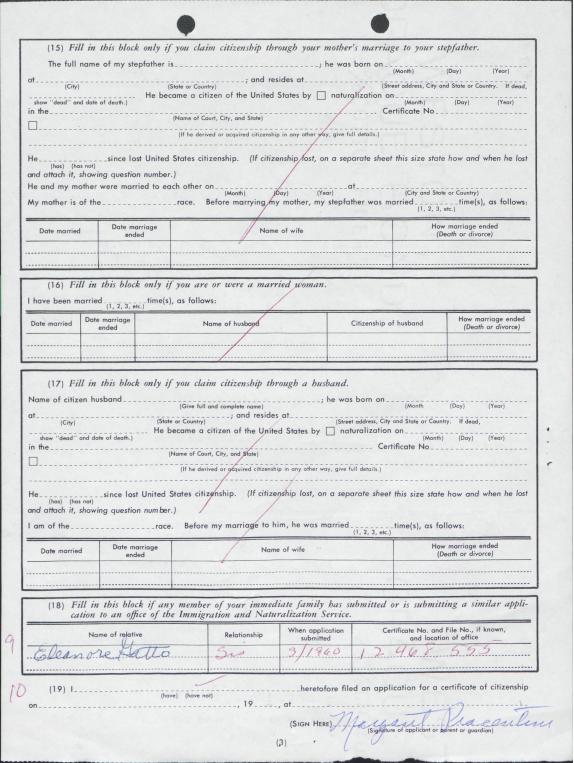 (15) Fill in this block only if you claim citizenship through your mother's marriage to your stepfather.
The full name of my stepfather is ; he was born on
(Month) (Day) (Year)
at ; and resides at
(City) (State or Country) (Street address, City and State or Country. If dead,
He became a citizen of the United States by ☐ naturalization on
show "dead" and date of death.) (Month) (Day) (Year)
in the Certificate No
(Name of Court, City, and State)
☐
(If he derived or acquired citizenship in any other way, give full details.)
He since lost United States citizenship. (If citizenship lost, on a separate sheet this size state how and when he lost
(has) (has not)
and attach it, showing question number.)
He and my mother were married to each other on at
(Month) (Day) (Year) (City and State or Country)
My mother is of the race. Before marrying my mother, my stepfather was married time(s), as follows:
(1, 2, 3, etc.)
Date married Date marriage ended Name of wife How marriage ended (Death or divorce)
(16) Fill in this block only if you are or were a married woman.
I have been married time(s), as follows:
(1, 2, 3, etc.)
Date married Date marriage ended Name of husband Citizenship of husband How marriage ended (Death or divorce)
(17) Fill in this block only if you claim citizenship through a husband.
Name of citizen husband ; he was born on
(Give full and complete name) (Month (Day) (Year)
at and resides at
(City) (State or Country) (Street address, City and State or Country. If dead,
He became a citizen of the United States by ☐ naturalization on
show "dead" and date of death.) (Month) (Day) (Year)
in the Certificate No
(Name of Court, City, and State)
☐
(If he derived or acquired citizenship in any other way, give full details.)
He since lost United States citizenship. (If citizenship lost, on a separate sheet this size state how and when he lost
(has) (has not)
and attach it, showing question number.)
I am of the race. Before my marriage to him, he was married time(s), as follows:
(1, 2, 3, etc.)
Date married Date marriage ended Name of wife How marriage ended (Death or divorce)
(18) Fill in this block if any member of your immediate family has submitted or is submitting a similar appli-
cation to an office of the Immigration and Naturalization Service.
Name of relative Relationship When application submitted Certificate No. and File No., if known, and location of office
9 Eleanore Gatto Sis 3/1960 12 468 555
10 (19) I heretofore filed an application for a certificate of citizenship
(have) (have not)
on , 19 , at
(SIGN HERE) Margaret Piacentini
(Signature of applicant or parent or guardian)
(3)